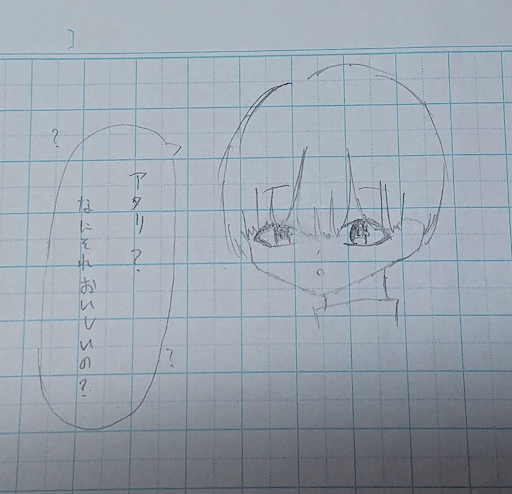 アタリ?
なにそれおいしいの?
?
?